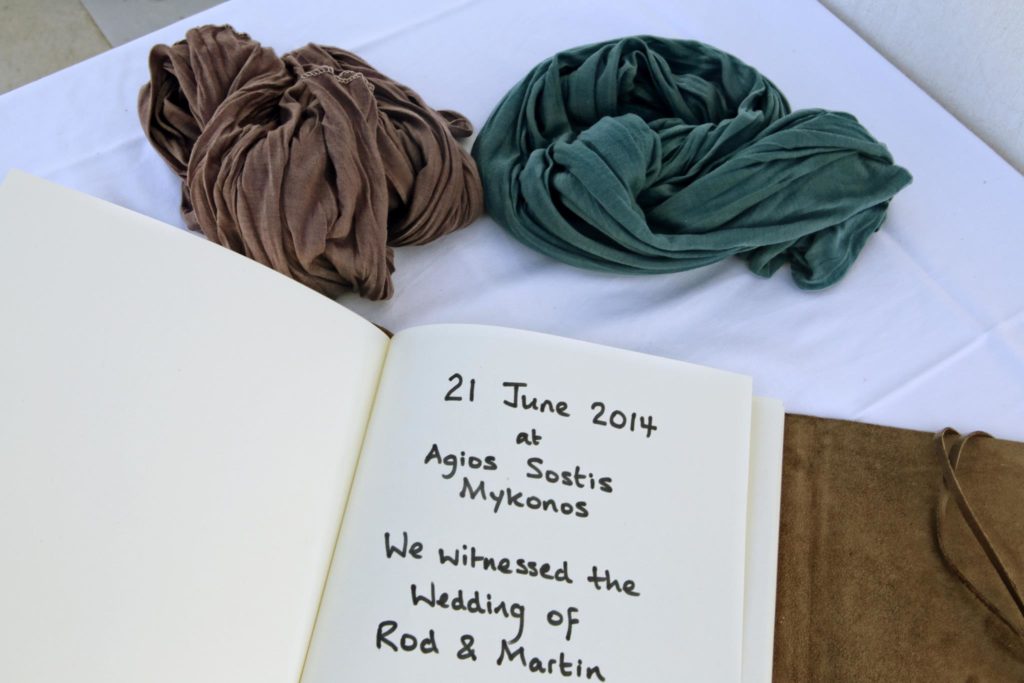 21 June 2014
at
Agios Sostis
Mykonos
We witnessed the
Wedding of
Rod & Martin